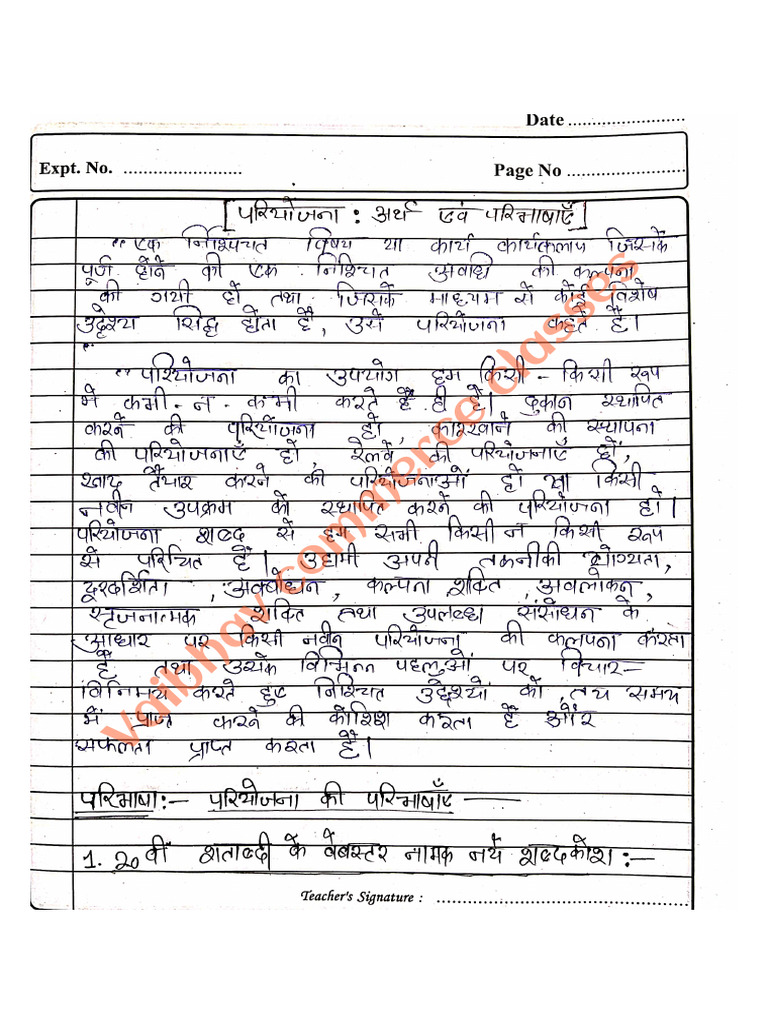 Date ..........................
Expt. No. ..........................
Page No ..........................
[परियोजना : अर्थ एवं परिभाषाएँ]
" एक निश्चित विषय या कार्य कार्यकलाप जिसके
पूर्ण होने की एक निश्चित अवधि की कल्पना
की गयी हो तथा जिसके माध्यम से कोई विशेष
उद्देश्य सिद्ध होता है, उसे परियोजना कहते है।
"
" परियोजना का उपयोग हम किसी - किसी रूप
में कभी - न - कभी करते है ही है। दुकान स्थापित
करने की परियोजना हो, कारखाने की स्थापना
की परियोजनाएँ हो, रेलवे की परियोजनाएँ हो,
खाद तैयार करने की परियोजनाओं हो या किसी
नवीन उपक्रम को स्थापित करने की परियोजना हो।
परियोजना शब्द से हम सभी किसी न किसी रूप
से परिचित है। उद्यमी अपनी तकनीकी योग्यता,
दूरदर्शिता, अवबोधन, कल्पना शक्ति, अवलोकन,
सृजनात्मक शक्ति तथा उपलब्ध संसाधन के
आधार पर किसी नवीन परियोजना की कल्पना करता
है तथा उसके विभिन्न पहलुओं पर विचार-
विनिमय करते हुए निश्चित उद्देश्यों को तय समय
में प्राप्त करने की कोशिश करता है और
सफलता प्राप्त करता है।
परिभाषा:- परियोजना की परिभाषाएँ -
1. 20वीं शताब्दी के वेबस्टर नामक नये शब्दकोश :-
Teacher's Signature : ..........................
vaibhav commerce classes